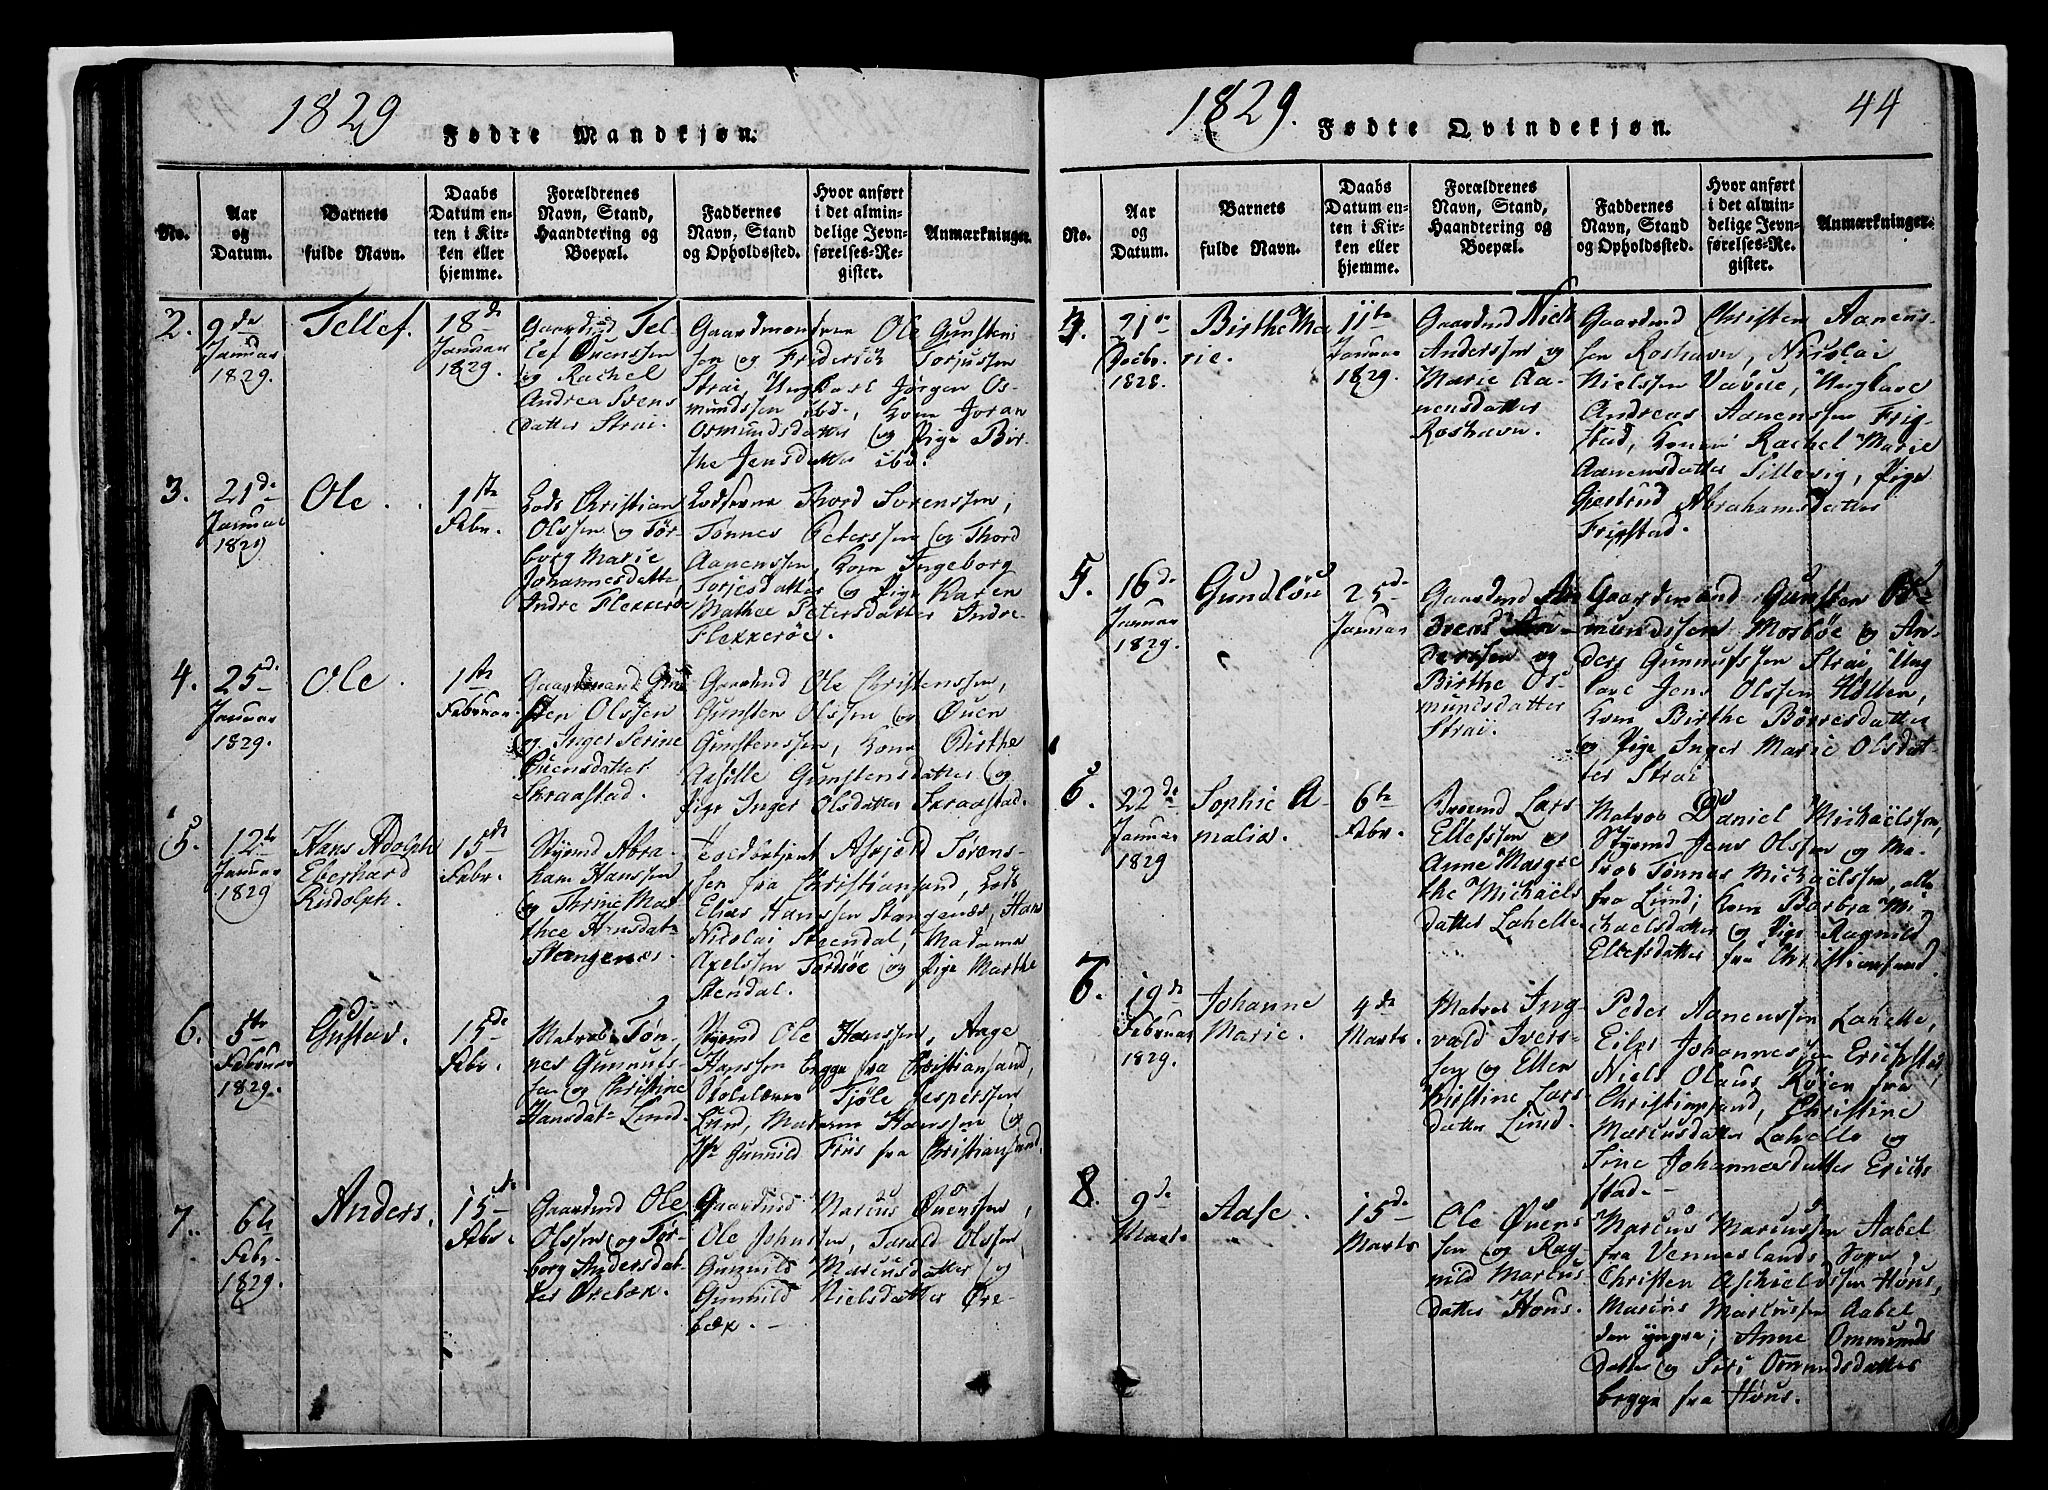 1829
Fødte Mandkjøn.
No.
Aar
og
Datum.
Barnets
fulde Navn.
Daabs
Datum en-
ten i Kir-
ken eller
hjemme.
Forældrenes
Navn, Stand,
Haandtering og
Boepæl.
Faddernes
Navn, Stand
og Opholdssted.
Hvor anført
i det almin-
delige Jevn-
førelses-Re-
gister.
Anmærkninger.
2.
9de
Januar
1829.
Tellef.
18de
Januar
1829.
Gaardmd Tel-
lef Øuenssen
og Rachel
Andrea Svens
Datter Strai.
Gaardmændene Ole Gunsten
sen og Friderich Torjussen
Strai, Ungkarl Jørgen Os-
mundssen ibd, Kone Joran
Osmundsdatter og Pige Bir-
the Jensdatter ibd.
3.
21de
Januar
1829
Ole.
1ste
Febr.
Lods Christian
Olssen og Tør-
borg Marie
Johannesdatter
Indre Flekkerøe
Lodserne Thord Sørenssen,
Tønnes Peterssen og Thord
Aanenssen, Kone Ingeborg
Torjesdatter og Pige Karen
Mathea Petersdatter Indre
Flekkerøe.
4.
25de
Januar
1829.
Ole
1ste
Februar.
Gaardmand Gun
sten Olssen
og Inger Serine
Øuensdatter
Skraastad.
Gaardmd Ole Christenssen,
Gunsten Olssen og Øuen
Gunstenssen, Kone Birthe
Aasille Gunstensdatter og
Pige Inger Olsdatter Skraastad.
5.
12te
Januar
1829
Hans Adolph
Eberhard
Rudolph.
15de
Febr.
Styrmd Abra
ham Hanssen
og Thrine Mar
thee Hansdat
Stangenæs.
Askjerd Sørens-
sen fra Christiansand, Lods
Elias Hanssen Stangenæs, Hans
Nicolai Steendal, Madame
Axelssen Tordsøe og Pige Marthe
Stendal.
6.
5te
Februar
1829.
Gustav.
15de
Febr.
Matros Tøn-
nes Gunnuls-
sen og Christine
Hansdatr Lund.
Styrmd Ole Hanssen, Aage
Hanssen begge fra Christiansand,
Skolelærer Tjøle Jesperssen
Lund, Madame Hanssen og
Jfr Gunnild Friis fra Christiansand.
7.
6te
Febr.
1829.
Anders.
15de
Febr.
Gaardmd Ole
Olssen og Tør-
borg Andersdat-
ter Ørebæk.
Gaardmd Marcus Øuenssen,
Ole Johnssen, Tarald Olssen,
Gunnild Marcusdatter og
Gunnild Nielsdatter Øre-
bæk.
1829.
Fødte Qvindekjøn.
44
No.
Aar
og
Datum.
Barnets
fulde Navn.
Daabs
Datum en-
ten i Kir-
ken eller
hjemme.
Forældrenes
Navn, Stand,
Haandtering og
Boepæl.
Faddernes
Navn, Stand
og Opholdssted.
Hvor anført
i det almin-
delige Jevn-
førelses-Re-
gister.
Anmærkninger.
21de
Decbr.
1828.
Birthe Ma
rie.
11te
Januar
1829.
Gaardmd Niels
Anderssen og
Marie Aa-
nensdatter
Roshavn.
Gaardmd Christen Aanens-
sen Roshavn, Nicolai
Nielssen Vabue, Ungkarl
Andreas Aanenssen Frig-
stad, Kone Rachel Marie
Aanensdatter Sillevig, Pige
Gjertrud Abrahamsdatter
Frigstad.
5.
16de
Januar
1829.
Gundløu
25de
Januar
Gaardmd An
dreas An-
derssen og
Birthe Os-
mundsdatter
Strai.
Gaardmænd Gunsten Os-
mundssen Mosbøe og An-
ders Gunnufssen Strai, Ung
karl Jens Olssen Holten,
Kone Birthe Børresdatter
og Pige Inger Marie Olsdat-
ter Strai
6.
22de
Januar
1829
Sophie A-
malia.
6te
Febr.
Lars
Ellefssen og
Anne Margre
the Michaels
datter Lahelle.
Matros Daniel Michaelssen,
Styrmd Jens Olssen og Ma-
tros Tønnes Michaelssen, alle
fra Lund; Kone Barbra Mi-
kaelsdatter og Pige Ragnild
Ellefsdatter fra Christiansand.
7.
19de
Februar
1829.
Johanne
Marie.
4de
Marts.
Matros Ing
vald Ivers-
sen og Ellen
Kirstine Lars
datter Lund.
Peder Aanenssen Lahelle,
Eiler Johannessen Erichstad,
Niels Olaus Røien fra
Christiansand, Christine
Marcusdatter Lahelle og
Sine Johannesdatter Erich
stad.
8.
9de
Marts.
Aase.
15de
Marts
Ole Øuens
sen og Rag-
nild Marcus
datter Høus.
Marcus Marcussen Aabel
fra Venneslands Sogn,
Christen Aschieldssen Høus,
Marcus Marcussen Aabel
den yngre; Anne Ommunds
datter og Siri Ommundsdatter
begge fra Høus.